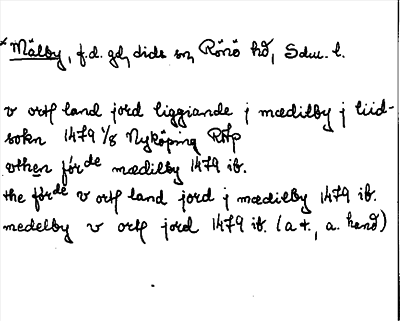 * Mälby, f.d. gd, dids sn, Rönö hd, Sdm. l.
v ortl land jord liggiande j mædilby j liid-
sokn 1479 1/8 Nyköping RAp
othen förde mædilby 1479 ib.
the förde v ortl land jord j mædilby 1479 ib.
medelby v ortl jord 1479 ib. (a t., a. hand)